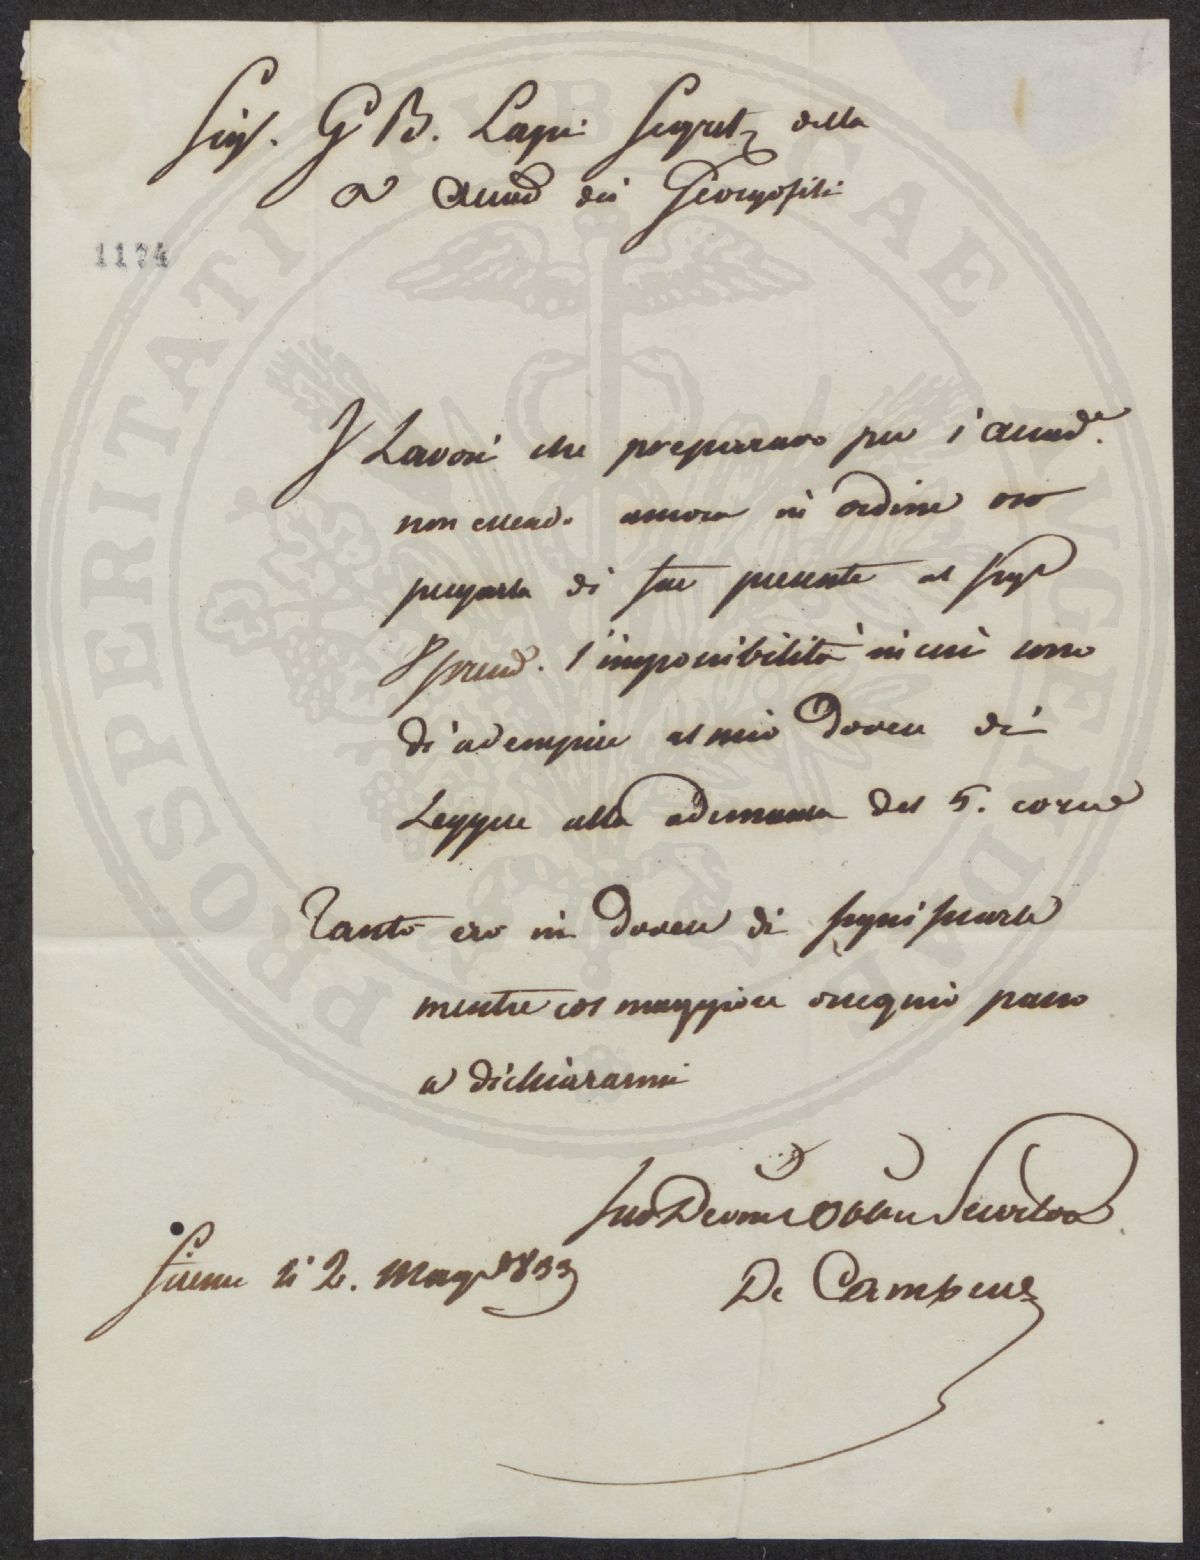 Sigr. G B. Lapi Segret della
Accad dei Georgofili
1174
I Lavori che preparavo per l'Accade.
non essendo ancora in ordine oso
pregarla di far presente al Sigr
Presid. l'impossibilità in cui sono
di adempire al mio dovere di
Leggere alla adunanza del 5. corre
Tanto ero in dovere di significarle
mentre col maggiore ossequio passo
a dichiararmi
Suo Devmo Obbmo Servitore
Firenze li 2. Mago 1833
De Cambray
PROSPERITATI PUBLICAE AUGENDAE